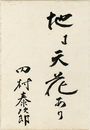 地に天花あり
田村泰次郎